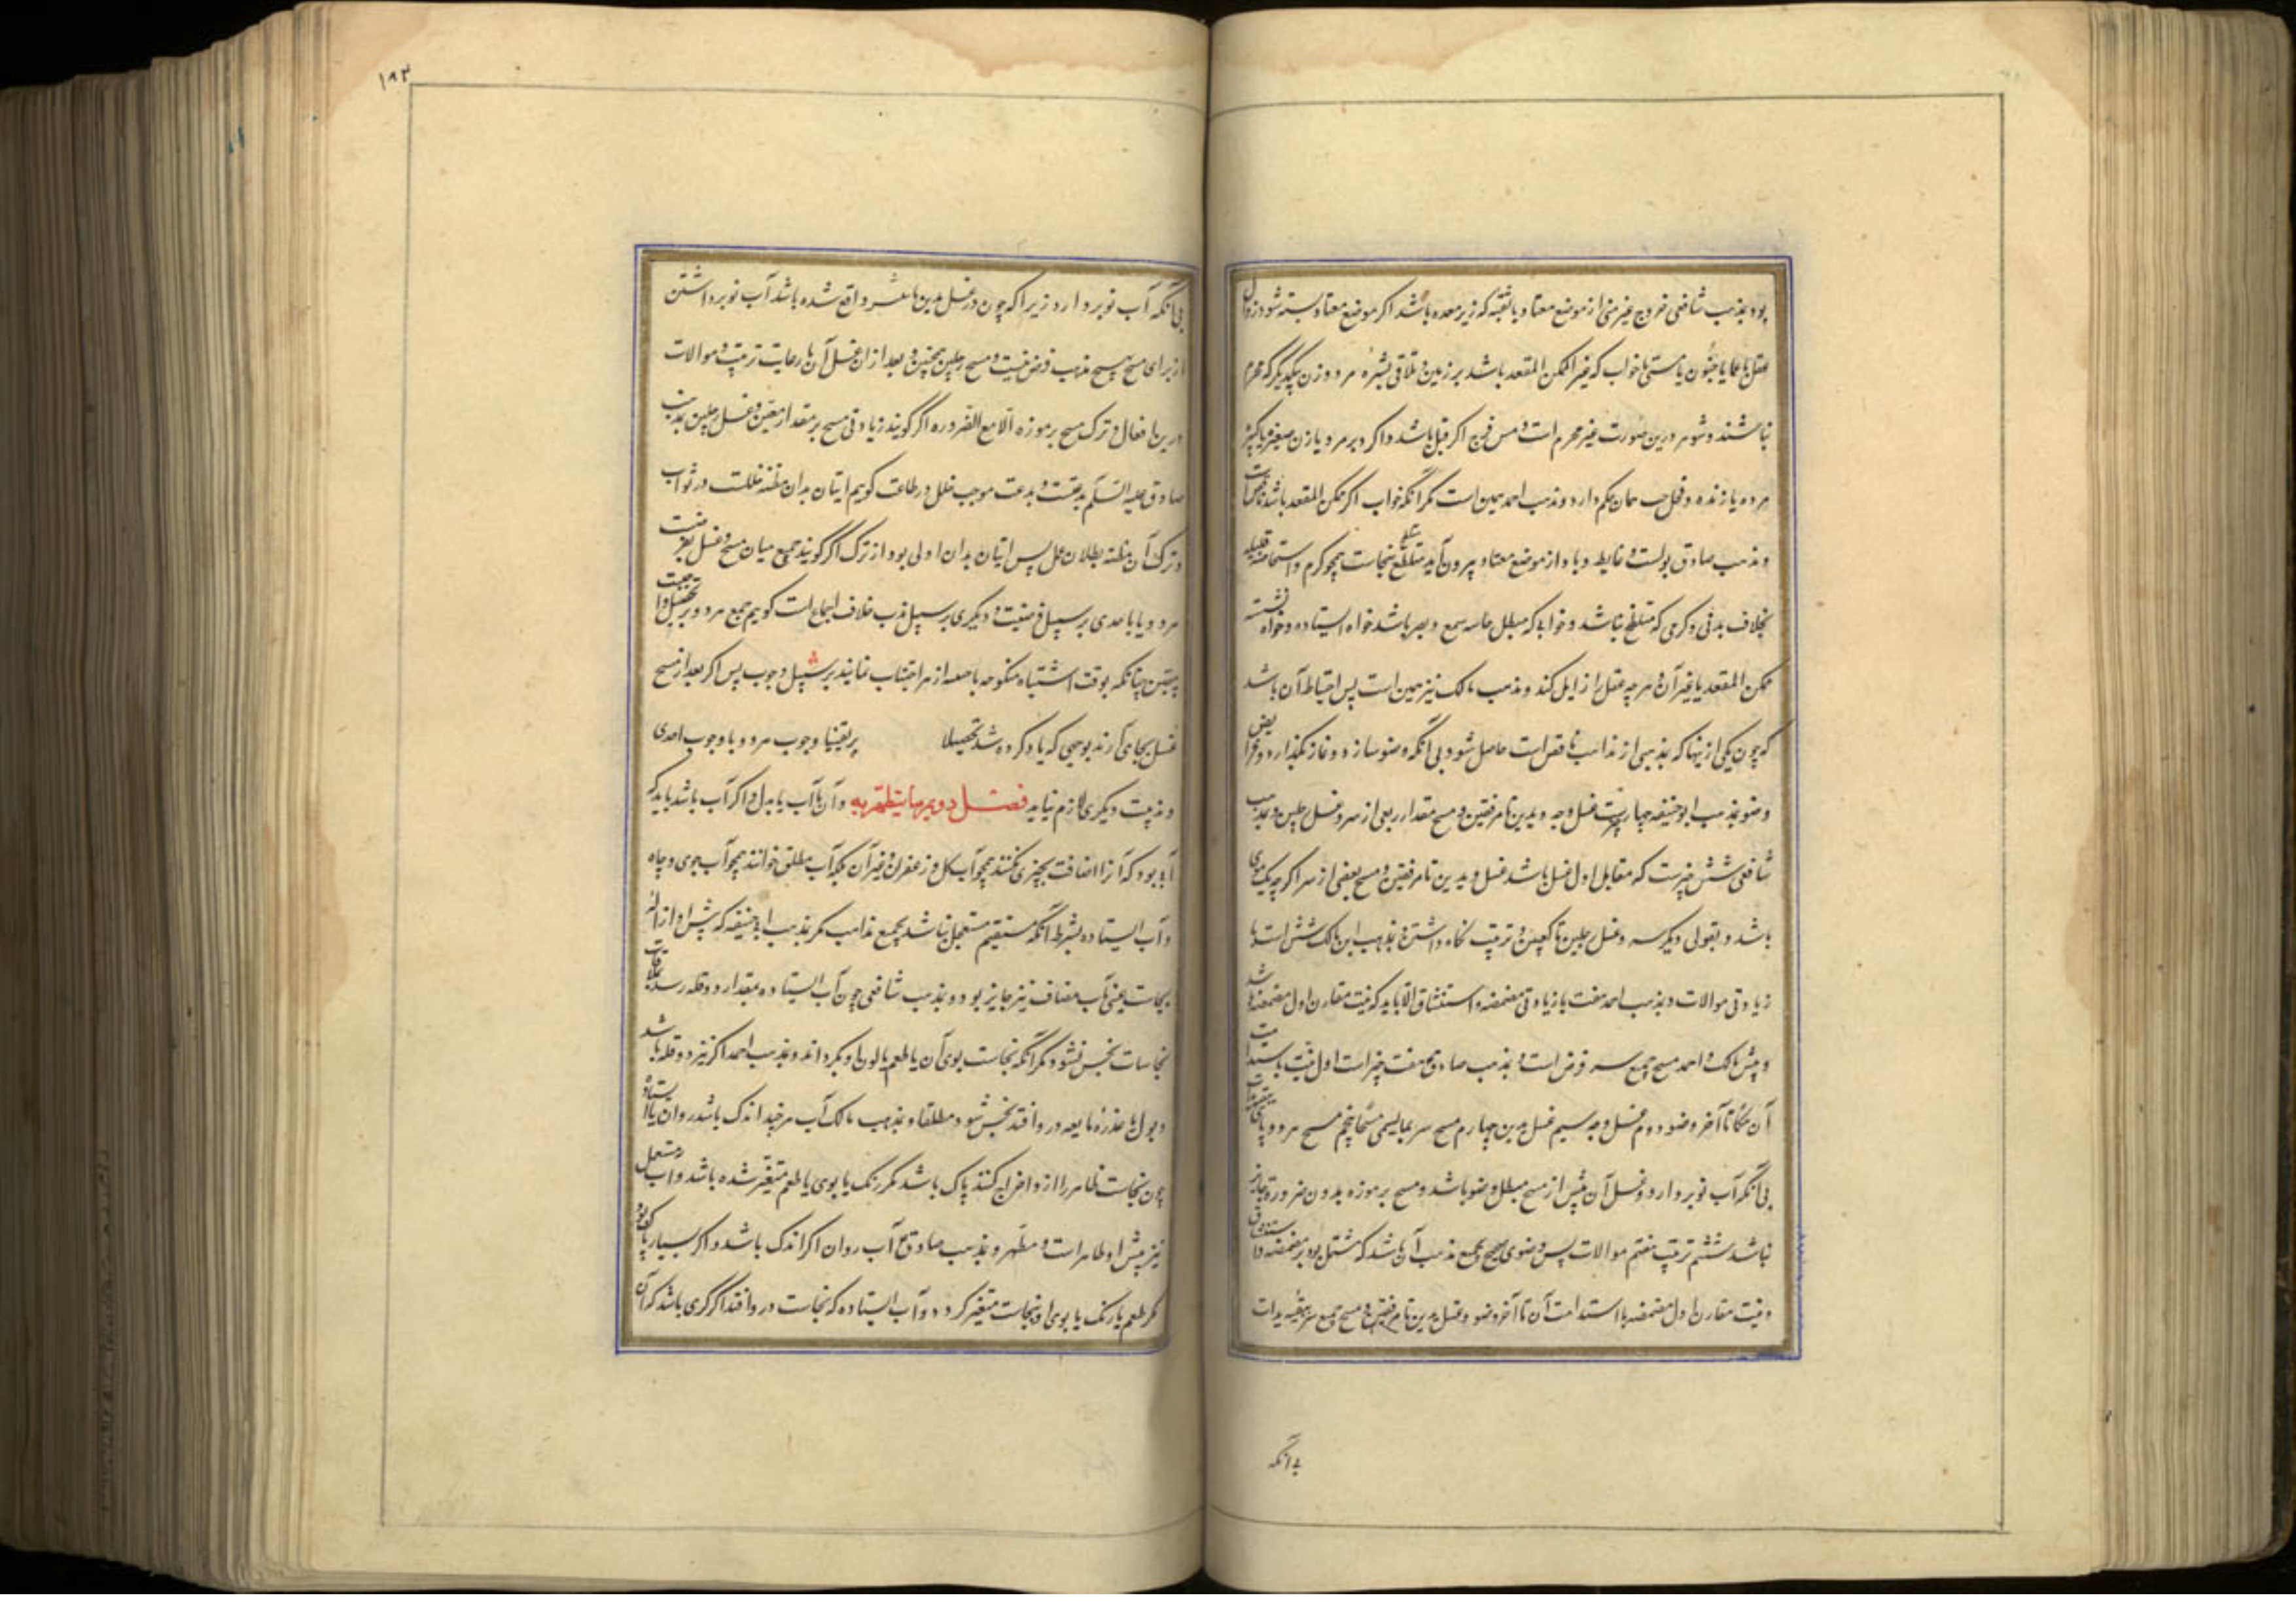 بود بمذهب شافعی خروج غیر منی از موضع معتاد یا ثقبه که زیر معده باشد اگر موضع معتاد بسته شود و زوال
عقل باغما یا جنون یا مستی یا خواب که غیر ممکن المقعد باشد بر زمین و تلاقی بشره مرد و زن بیکدیگر که محرم
نباشند و شوهر درین صورت غیر محرم است و مس فرج اگر قبل باشد و اگر دبر مرد یا زن صغیر یا کبیر
مرده یا زنده و محل جب همان حکم دارد و مذهب احمد همین است مگر آنکه خواب اگر ممکن المقعد باشد ناقض است
و مذهب صادق بولست و غایط و باد از موضع معتاد بیرون آید متلطخ بنجاست همچو کرم و استحاضه قلیله
بخلاف بدنی و کرمی که متلطخ نباشد و خوابی که مبطل حاسه سمع و بصر باشد خواه ایستاده و خواه نشسته
ممکن المقعد یا غیر آن و هر چه عقل را زایل کند و مذهب مالک نیز همین است پس احتیاط آن باشد
که چون یکی ازینها که بمذهبی از مذاهب ناقض است حاصل شود بی آنکه وضو سازد و نماز نگذارد و فرایض
وضو بمذهب ابو حنیفه چهارست غسل وجه و یدین تا مرفقین و مسح مقدار ربعی از سر و غسل رجلین و بمذهب
شافعی شش چیزست که مقابل اول غسل باشد غسل و یدین تا مرفقین و مسح بعضی از سر اگر چه یک موی
باشد و بقولی دیگر سه و غسل رجلین تا کعبین و ترتیب نگاه داشتن و بمذهب ابن مالک شش است با
زیادتی موالات و بمذهب احمد هفت با زیادتی مضمضه و استنشاق الا باید که نیت مقارن اول مضمضه باشد
و پیش مالک و احمد مسح جمیع سر فرض است و بمذهب صادق هفت چیز است اول نیت باستدامت
آن حکما تا آخر وضو دوم غسل وجه سیم غسل یدین چهارم مسح سر بما یسمی مسحا پنجم مسح هر دو پای
بی آنکه آب نو بردارد و غسل آن پیش از مسح مبطل وضو باشد و مسح بر موزه بدون ضرورت جایز
نباشد ششم ترتیب هفتم موالات پس وضوی صحیح بجمیع مذهب آن باشد که مشتمل بود بر مضمضه و استنشاق
و نیت مقارن اول مضمضه با استدامت آن تا آخر وضو و غسل یدین تا مرفقین و مسح جمیع سر ببقیه یدات
بی آنکه
۱۹۳
بی آنکه آب نو بردارد زیرا که چون در غسل یدین ما شرد واقع شده باشد آب نو برداشتن
از برای مسح بهیچ مذهب فرض نیست و مسح رجلین همچنین و بعد از آن غسل آن با رعایت ترتیب و موالات
درین افعال و ترک مسح بر موزه الا مع الضروره اگر گویند زیادتی مسح بر مقدار معین و غسل رجلین بمذهب
صادق علیه السلم بدعتست و بدعت موجب خلل در طاعت گویم اتیان بدان مظنه خللست در ثواب
و ترک آن مظنه بطلان عمل پس اتیان بدان اولی بود از ترک اگر گویند جمع میان مسح و غسل بفرضیت
هر دو یا باحدی بر سبیل فرضیت و دیگری بر سبیل ندب خلاف اجماع است گویم جمع هر دو بر تحصیل واجبت
بیقین چنانکه بوقت اشتباه منکوحه با معه از هر اجتناب نمایند بر سبیل وجوب پس اگر بعد از مسح
غسل بجای آرند بوجهی که یاد کرده شد تحصیلا بر یقینا وجوب هر دو یا وجوب احدی
و ندبیت دیگری لازم نیاید فصل دویم در ما یتطهر به و آن یا آب یا بدل و اگر آب باشد باید که
آبی بود که آنرا اضافت بچیزی نکنند همچو آب گل و زعفران و غیر آن بلکه آب مطلق خوانند همچو آب جوی و چاه
و آب ایستاده بشرط آنکه مستقیم مستعمل نباشد بجمیع مذاهب مگر بمذهب ابو حنیفه که پیش او ازاله
نجاست یعنی بآب مضاف نیز جایز بود و بمذهب شافعی چون آب ایستاده بمقدار دو قله رسد بملاقات
نجاسات نجس نشود مگر آنکه نجاست بوی آن یا طعم یا لون او بگرداند و بمذهب احمد اگر نیز دو قله باشد
و بول یا عذره مایعه در و افتد نجس شود مطلقا و بمذهب مالک آب هر چند اندک باشد روان یا ایستاده
چون نجاست ظاهر را ازو اخراج کنند پاک باشد مگر رنگ یا بوی یا طعم متغیر شده باشد و آب مستعمل
نیز پیش او طاهر است و مطهر و بمذهب صادق ع آب روان اگر اندک باشد و اگر بسیار پاک بود
مگر طعم یا رنگ یا بوی او بنجاست متغیر گردد و آب ایستاده که نجاست درو افتد اگر کری باشد که آن